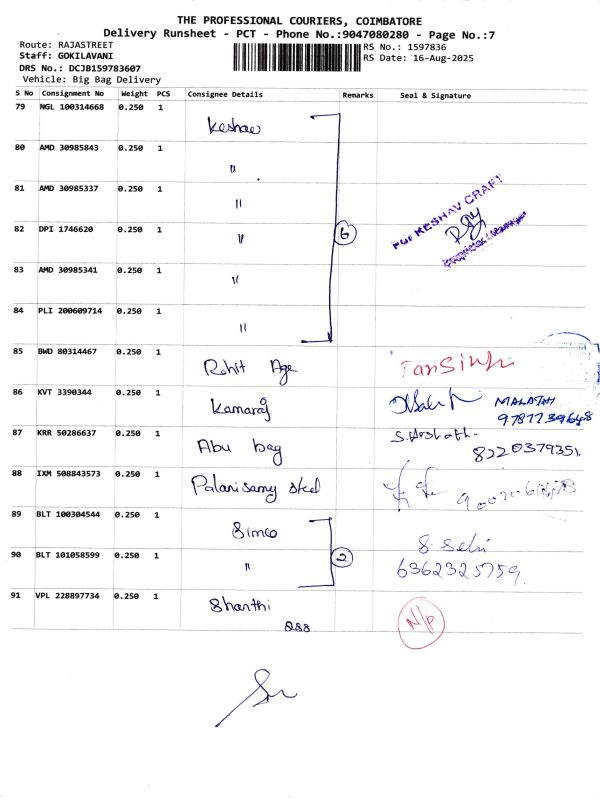 THE PROFESSIONAL COURIERS, COIMBATORE
Delivery Runsheet - PCT - Phone No.:9047080280 - Page No.:7
Route: RAJASTREET
RS No.: 1597836
Staff: GOKILAVANI
RS Date: 16-Aug-2025
DRS No.: DCJB159783607
Vehicle: Big Bag Delivery
S No Consignment No Weight PCS Consignee Details Remarks Seal & Signature
79 NGL 100314668 0.250 1 Keshav
80 AMD 30985843 0.250 1 "
81 AMD 30985337 0.250 1 "
FOR KESHAV CRAFT
82 DPI 1746620 0.250 1 " 6
Proprietor / Manager
83 AMD 30985341 0.250 1 "
84 PLI 200609714 0.250 1 "
85 BWD 80314467 0.250 1 Rohit Age Tarsinh
86 KVT 3390344 0.250 1 Kamaraj MALATHI
9787739648
87 KRR 50286637 0.250 1 Abu bag S. Harshath.
8220379351.
88 IXM 508843573 0.250 1 Palanisamy steel
89 BLT 100304544 0.250 1 Simco
S. Selvi
90 BLT 101058599 0.250 1 " 2 6362325759.
91 VPL 228897734 0.250 1 Shanthi N/P
288